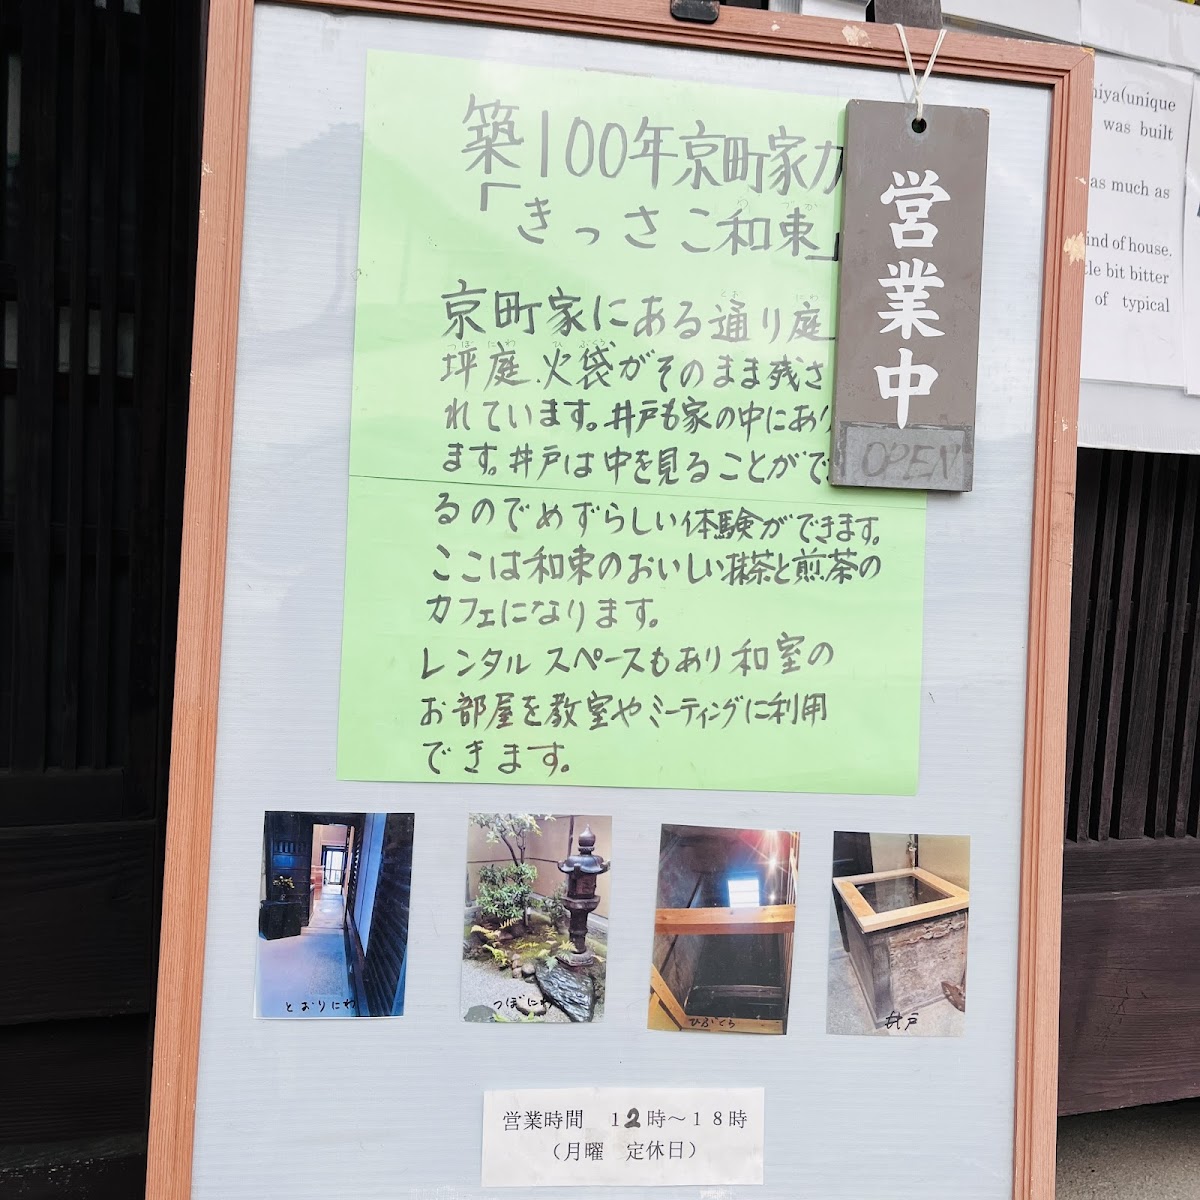 築100年京町家カ
「きっさこ和束」
京町家にある通り庭
とお にわ
坪庭、火袋がそのまま残さ
つぼ にわ ひ ぶくろ
れています。井戸も家の中にあり
ます。井戸は中を見ることができ
るのでめずらしい体験ができます。
ここは和束のおいしい抹茶と煎茶の
カフェになります。
レンタルスペースもあり和室の
お部屋を教室やミーティングに利用
できます。
営業中
OPEN
niya(unique
was built
as much as
ind of house.
tle bit bitter
of typical
とおりにわ
つぼにわ
ひぶくろ
井戸
営業時間 12時～18時
（月曜 定休日）